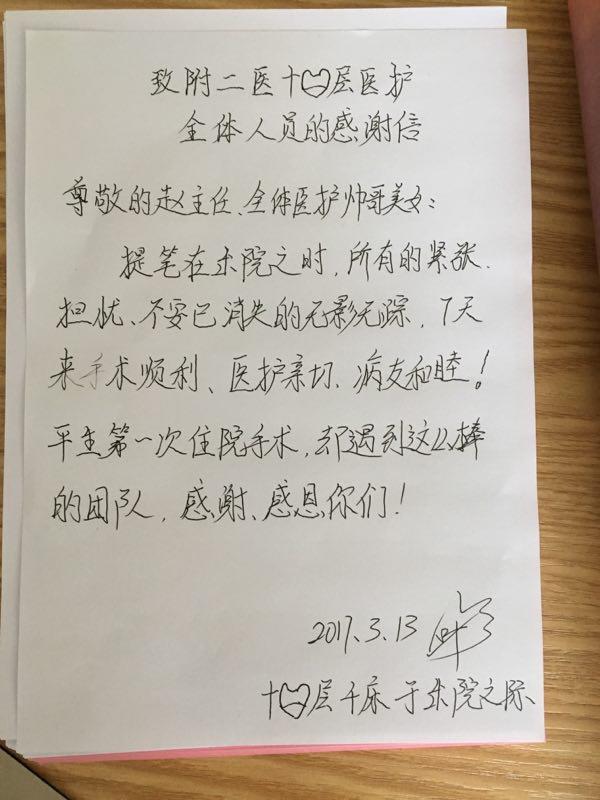 致附二医十♡层医护
全体人员的感谢信
尊敬的赵主任、全体医护帅哥美女：
提笔在出院之时，所有的紧张、
担忧、不安已消失的无影无踪，7天
来手术顺利、医护亲切、病友和睦！
平生第一次住院手术，却遇到这么棒
的团队，感谢、感恩你们！
2017.3.13
十♡层千床 于出院之际